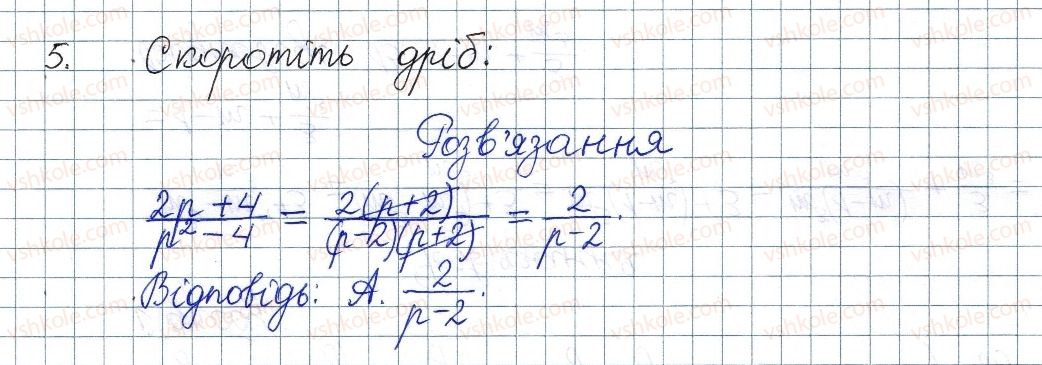 5. Скоротіть дріб:
Розв'язання
(2p+4)/(p²-4) = 2(p+2)/((p-2)(p+2)) = 2/(p-2).
Відповідь: А. 2/(p-2).
vshkole.com